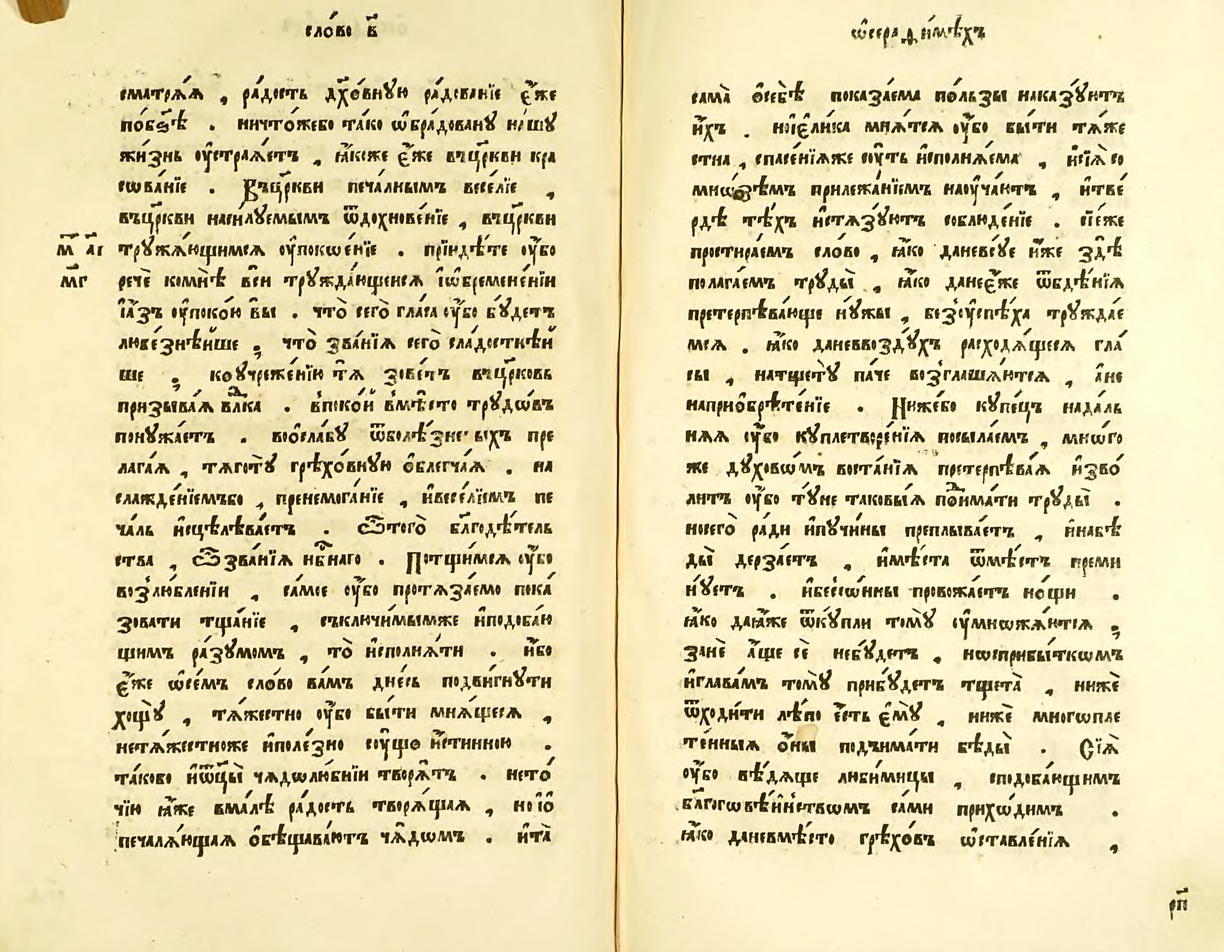 сло́во в҃
сматрѧ́ѧ , ра́дость дх҃о́вную ра́дованїе є҆́же
побѕѣ̀ . ничто́жебо та́ко ѡ҆бра́дованꙋ на́шꙋ
жи́знь ᲂу҆страѧ́етъ , ꙗ҆́коже є҆́же въцр҃кви кра
сѡва́нїе . Въцр҃кви печа́лнымъ весе́лїе ,
въцр҃кви наси́лꙋемымъ ѿдохнове́нїе , въцр҃кви
трꙋжа́ющимсѧ ᲂу҆покѡе́нїе . прїиндѣ́те ᲂу҆́бо
речѐ комнѣ̀ вси̑ трꙋжда́ющеисѧ и҆ѡ҆бремене́нїи
и҆а҆́зъ ᲂу҆поко́ю вы̀ . что̀ сего̀ гла́са ᲂу҆́бо бꙋ́детъ
любе́знѣйше ; что̀ зва́нїѧ сего̀ сла́достнѣй
ше ; коᲂу҆чреже́нїю тѧ̀ зове́тъ въцр҃ковь
призыва́ѧ вл҃ка . впоко́й вмѣ́сто трꙋдѡ́въ
понꙋжа́етъ . восла́бꙋ ѿболѣ́зне ыхъ пре
лага́ѧ , тѧготꙋ̀ грѣхо́внꙋю ѻ҆блегча́ѧ . на
слажде́нїемъбо , пренемога́нїе , и҆весе́лїемъ пе
ча́ль и҆сцѣлѣва́етъ . Ѿтого̀ бл҃годѣ́тель
ства , Ѿзва́нїѧ нбⷭ҇наго . Потщи́мсѧ ᲂу҆́бо
возлю́бленїи , са́мое ᲂу҆́бо протѧза́емо пока
зовати тща́нїе , съключи́мымже и҆подоба́ю
щимъ ра́зꙋмомъ , то̀ и҆сполнѧ́ти . и҆́бо
є҆́же ѡ҆се́мъ сло́во ва́мъ дне́сь подви́гнꙋти
хощꙋ̀ , тѧ́жестно ᲂу҆́бо бы́ти мнѧ́щеесѧ ,
нетѧ́жестноже и҆поле́зно сꙋ́ще и҆́стинною .
та́ково и҆ѻ҆тцы̀ чѧдолю́бнїи творѧ́тъ . нето́
чїю ꙗ҆̀же вма́лѣ ра́дость творѧ́щаѧ , но и҆
печалѧ́ющаѧ ѻ҆бѣщава́ютъ чѧ́дѡмъ . и҆та̀
м҃ а҃і
м҃г
ѡ҆сера́фимѣхъ
сама̀ ѻ҆себѣ̀ показа́ема по́льзы наказꙋ́ютъ
и҆́хъ . ноє҆ли́ка мнѧ́тсѧ ᲂу҆́бо бы́ти тѧ́же
стна , спасе́нїѧже сꙋ́ть и҆сполнѧ́ема , и҆сїѧ̀ со
мно́зѣмъ прилежа́нїемъ наᲂуча́ютъ , и҆тве́
рдѣ тѣ́хъ и҆стѧзꙋ́ютъ соблюде́нїе . сїе́же
простира́емъ сло́во , ꙗ҆́ко даневсꙋ́е и҆́же здѣ̀
полага́емъ трꙋды̀ , ꙗ҆́ко данеє҆́же ѿбдѣ́нїѧ
претерпѣва́юще нꙋ́жы , безᲂу҆спѣ́ха трꙋжда́е
мсѧ . ꙗ҆́ко даневвоздꙋ́хъ расходѧ́щесѧ гла́
сы , натщетꙋ̀ па́че возглаша́ютсѧ , а҆не
наприѻ҆брѣ́тенїе . Ни́жебо кꙋпе́цъ нада́ль
нѧѧ ᲂу҆́бо кꙋплетворе́нїѧ посыла́емъ , мно́го
же дꙋховѡ́мъ воста́нїѧ претерпѣва́ѧ и҆зво́
литъ ᲂу҆́бо тꙋ́не таковы́ѧ поима́ти трꙋды̀ .
носего̀ ра́ди и҆пꙋчи́ны преплыва́етъ , и҆набѣ
ды̀ дерза́етъ , и҆мѣ́ста ѿмѣ́стъ преми
нꙋ́етъ . и҆бессѡ́нны провожа́етъ но́щи .
ꙗ҆́ко даꙗ҆́же ѿкꙋ́пли томꙋ̀ ᲂу҆мно́жатсѧ ;
занѐ а҆́ще сѐ небꙋ́детъ , нѡсприбы́ткѡмъ
и҆глава́мъ томꙋ̀ прибꙋ́детъ тщета̀ , нижѐ
ѿходи́ти лѣ́по є҆́сть є҆мꙋ̀ , нижѐ многопле
те́нныѧ ѻ҆́ны под̾има́ти бѣды̀ . Сїѧ̀
ᲂу҆́бо вѣ́дѧще люби́мицы , сподоба́ющимъ
бл҃гоговѣ́и́нствомъ са́ми прихо́димъ .
ꙗ҆́ко даневмѣ́сто грѣхо́въ ѡ҆ставле́нїѧ ,
рп҃